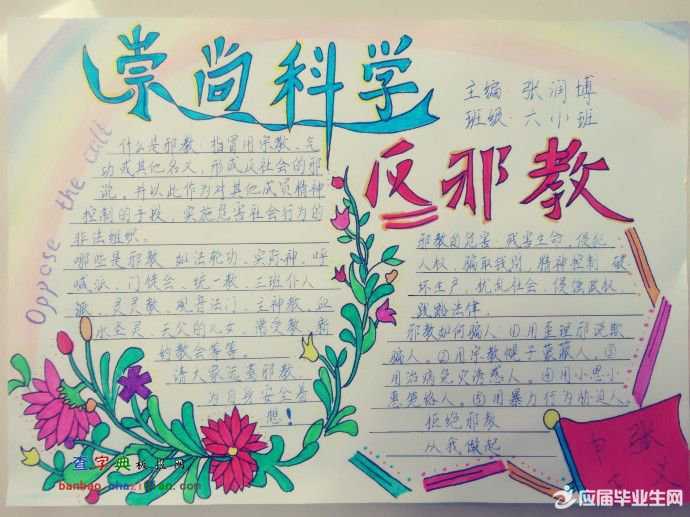 崇尚科学
主编：张润博
班级：六小班
Oppose the cult
反邪教
什么是邪教：指冒用宗教、气
功或其他名义，形成反社会的邪
说。并以此作为对其他成员精神
控制的手段，实施危害社会行为的
非法组织。
哪些是邪教：如法轮功、实际神、呼
喊派、门徒会、统一教、三班仆人
派、灵灵教、观音法门、主神教、血
水圣灵、天父的儿女、常受教、新
的教会等等。
请大家远离邪教，
为自身安全着
想！
邪教的危害：残害生命，侵犯
人权，骗取钱财，精神控制，破
坏生产，扰乱社会，侵蚀政权
践踏法律。
邪教如何骗人：①用歪理邪说欺
骗人。②用宗教幌子蒙蔽人，③
用治病免灾诱惑人。④用小恩小
惠笼络人。⑤用暴力行为协迫人。
拒绝邪教
从我做起
张
义
查字典板报网
banbao.chazidian.com
应届毕业生网